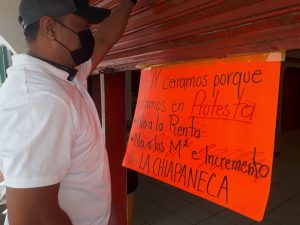 Y cerramos porque
estamos en Protesta
• No a la Renta
• No a los M² e Incremento
LA CHIAPANECA